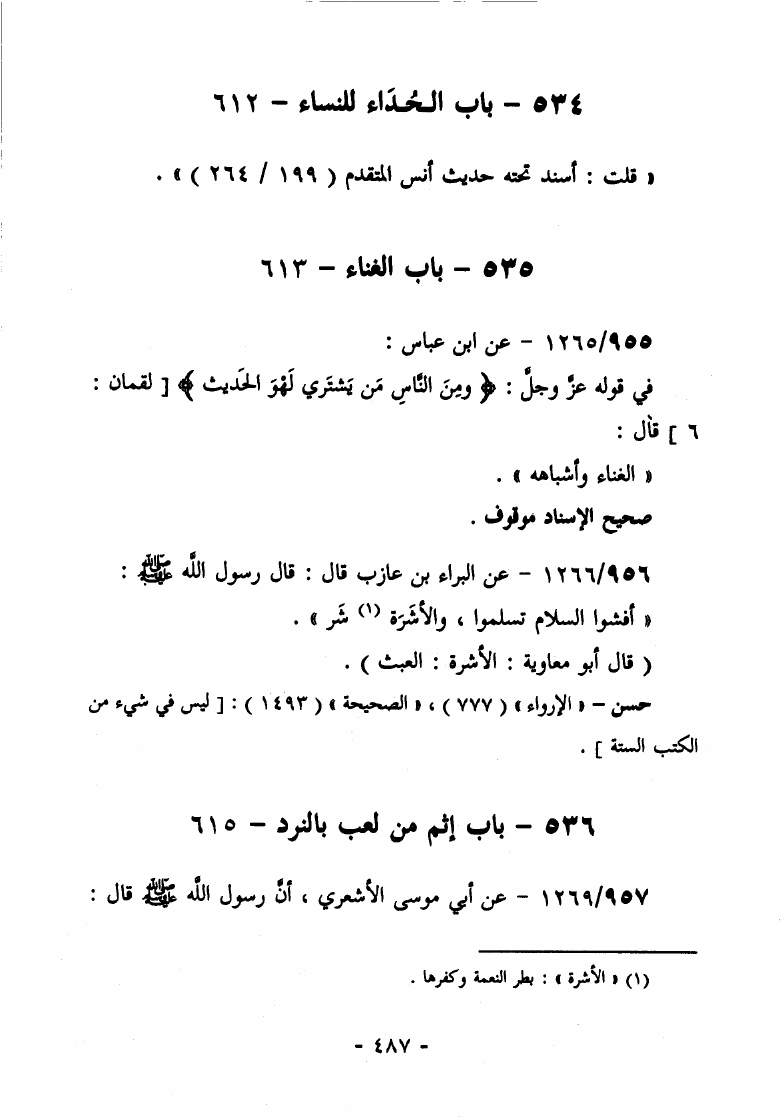 ٥٣٤ – باب الـحُدَاء للنساء – ٦١٢
« قلت : أسند تحته حديث أنس المتقدم ( ١٩٩ / ٢٦٤ ) » .
٥٣٥ – باب الغناء – ٦١٣
١٢٦٥/٩٥٥ – عن ابن عباس :
في قوله عزَّ وجلَّ : ﴿ ومِنَ النَّاسِ مَن يَشتَري لَهْوَ الحَديث ﴾ [ لقمان :
٦ ] قال :
« الغناء وأشباهه » .
صحيح الإسناد موقوف .
١٢٦٦/٩٥٦ – عن البراء بن عازب قال : قال رسول اللَّه ﷺ :
« أفشوا السلام تسلموا ، والأشَرَة (١) شَر » .
( قال أبو معاوية : الأشرة : العبث ) .
حسن – « الإرواء » ( ٧٧٧ ) ، « الصحيحة » ( ١٤٩٣ ) : [ ليس في شيء من
الكتب الستة ] .
٥٣٦ – باب إثم من لعب بالنرد – ٦١٥
١٢٦٩/٩٥٧ – عن أبي موسى الأشعري ، أنَّ رسول اللَّه ﷺ قال :
(١) « الأشرة » : بطر النعمة وكفرها .
- ٤٨٧ -